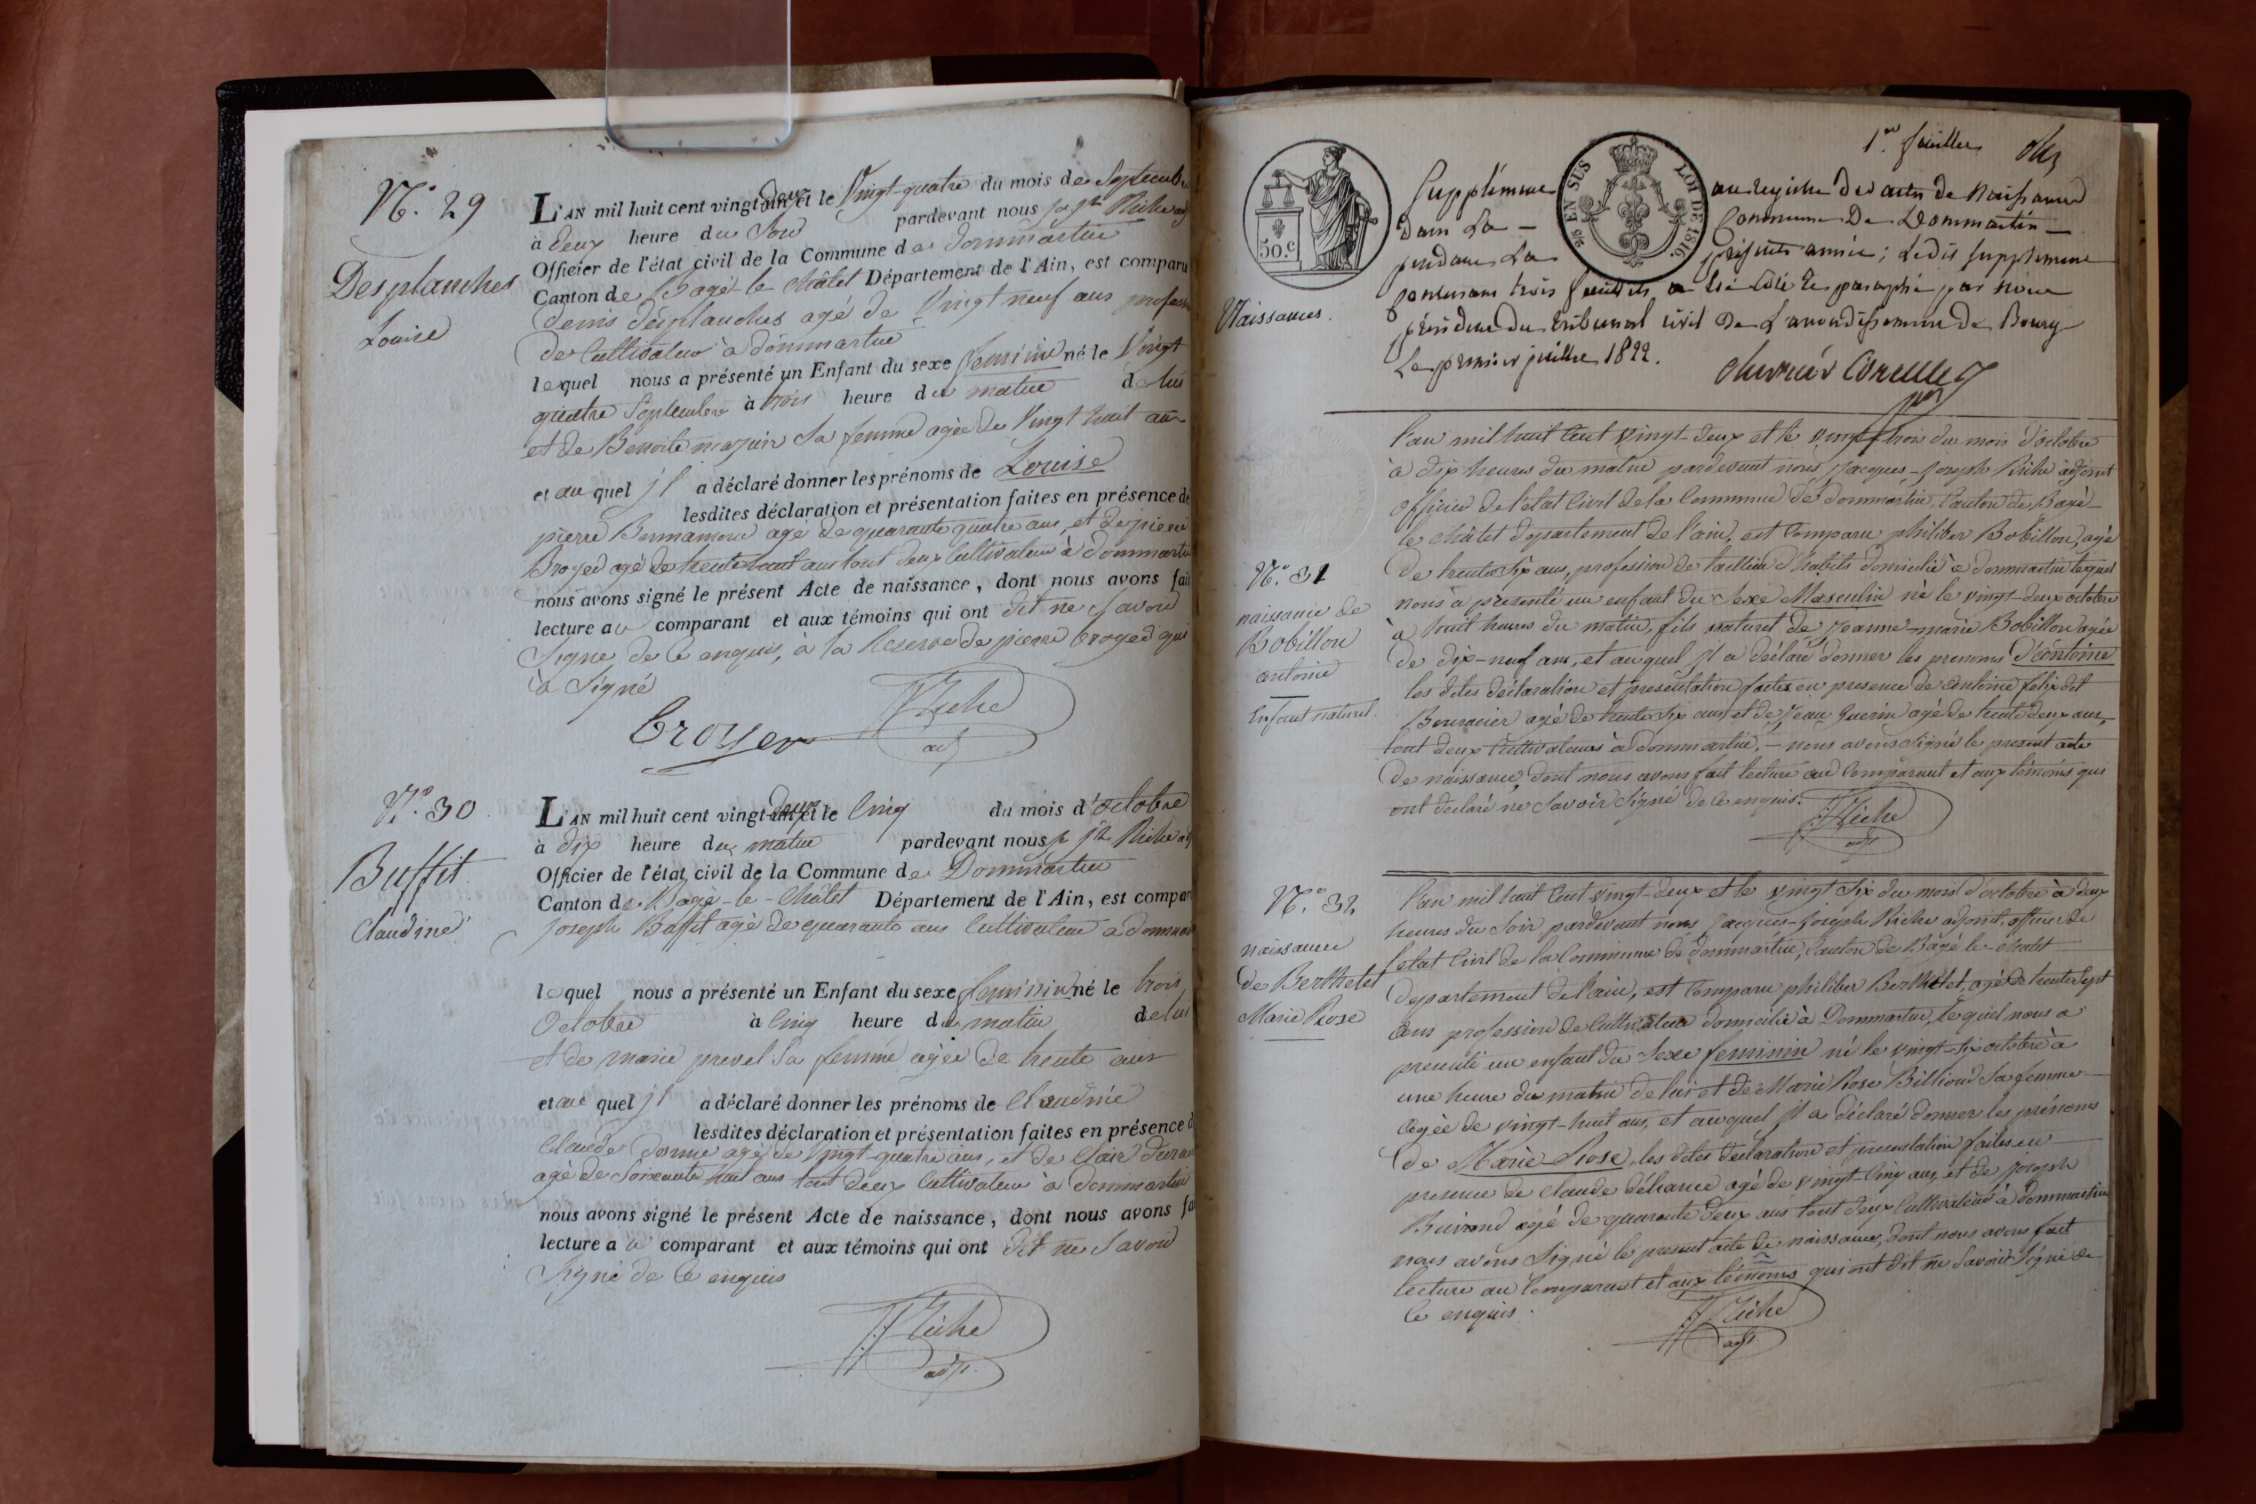 N.° 29
Desplanches
Louise
L'AN mil huit cent vingt deux et le Vingt-quatre du mois de Septembre
à deux heure du Soir pardevant nous j. jph Riche adj
Officier de l'état civil de la Commune de dommartin
Canton de Bagé-le-châtel Département de l'Ain, est comparu
denis desplanches agé de Vingt neuf ans profession
de Cultivateur à dommartin
lequel nous a présenté un Enfant du sexe feminin né le Vingt
quatre Septembre à trois heure du matin de lui
et de Benoite mazuir Sa femme agée de Vingt huit ans
et au quel jl a déclaré donner les prénoms de Louise
lesdites déclaration et présentation faites en présence de
pierre agé de quarante quatre ans, et de pierre
Broyer agé de trente huit ans tout deux Cultivateur à dommartin
nous avons signé le présent Acte de naissance, dont nous avons fait
lecture au comparant et aux témoins qui ont dit ne Savoir
Signe de ce enquis, à la Reserve de pierre broyer qui
à Signé
broyer
JJ Riche
adj
N.° 30
Buffit
Claudine
L'AN mil huit cent vingt-deux et le Cinq du mois d'octobre
à dix heure du matin pardevant nous j. jph Riche adj
Officier de l'état civil de la Commune de Dommartin
Canton de Bagé-le-Châtel Département de l'Ain, est compar
joseph Buffit agé de quarante ans Cultivateur à dommar
lequel nous a présenté un Enfant du sexe feminin né le trois
Octobre à Cinq heure du matin de lui
et de marie prevel Sa femme agée de trente ans
et au quel jl a déclaré donner les prénoms de Claudine
lesdites déclaration et présentation faites en présence d
Claude agé de Vingt-quatre ans, et de Clair
agé de Soixante huit ans tout deux Cultivateur à dommartin
nous avons signé le présent Acte de naissance, dont nous avons fa
lecture au comparant et aux témoins qui ont dit ne Savoir
Signé de ce enquis
JJ Riche
adj.
1er feuillet
50.c
EN SUS
LOI DE 1816
Supplément au registre des actes de Naissances
dans La Commune De Dommartin
pendant La présente année; Ledit supplement
contenant trois feuillets a été Coté et paraphé par Nous
président du tribunal civil De L'arrondissement de Bourg
Le premier juillet 1822.
Naissances.
L'an mil huit Cent vingt-deux et le vingt trois du mois d'octobre
à dix heures du matin pardevant nous jacques-joseph Riche adjoint
officier de l'état Civil de la Commune de dommartin, Canton de Bagé-
le châtel departement de l'ain, est Comparu philiber Bobillon, agé
de trente Six ans, profession de tailleur d'habits domicilié à dommartin lequel
nous à présenté un enfant du Sexe Masculin né le vingt-deux octobre
à huit heures du matin, fils naturel de jeanne-marie Bobillon agée
de dix-neuf ans, et auquel jl a déclaré donner les prenoms d'antoine
les dites déclaration et presentation faites en presence de antoine felix dit
agé de trente Six ans et de jean Guerin agé de trente deux ans,
tout deux Cultivateurs à dommartin. — nous avons Signé le present acte
de naissance, dont nous avons fait lecture au Comparant et aux témoins qui
ont déclaré ne Savoir Signé de ce enquis.
JJ Riche
adj
N.° 31
naissance de
Bobillon
antoine
Enfant naturel.
N.° 32
naissance
de Berthelet
Marie Rose
L'an mil huit Cent vingt-deux et le vingt Six du mois d'octobre à deux
heures du Soir pardevant nous jacques-joseph Riche adjoint, officier de
l'etat Civil de la Commune de dommartin, Canton de Bagé le-chatel
departement de l'ain, est Comparu philiber Berthelet, agé de trente Sept
ans profession de Cultivateur domicilié à Dommartin, lequel nous a
presenté un enfant du Sexe feminin né le vingt-Six octobre à
une heure du matin de lui et de Marie Rose Billioud Sa femme
agée de vingt-huit ans, et auquel jl a déclaré donner les prénoms
de Marie Rose, les dites declaration et presentation faites en
presence de Claude agé de vingt-Cinq ans, et de joseph
agé de quarante deux ans tout deux Cultivateur à Dommartin
nous avons Signé le present acte de naissance, dont nous avons fait
lecture au Comparant et aux témoins qui ont dit ne Savoir Signé de
Ce enquis.
JJ Riche
adj